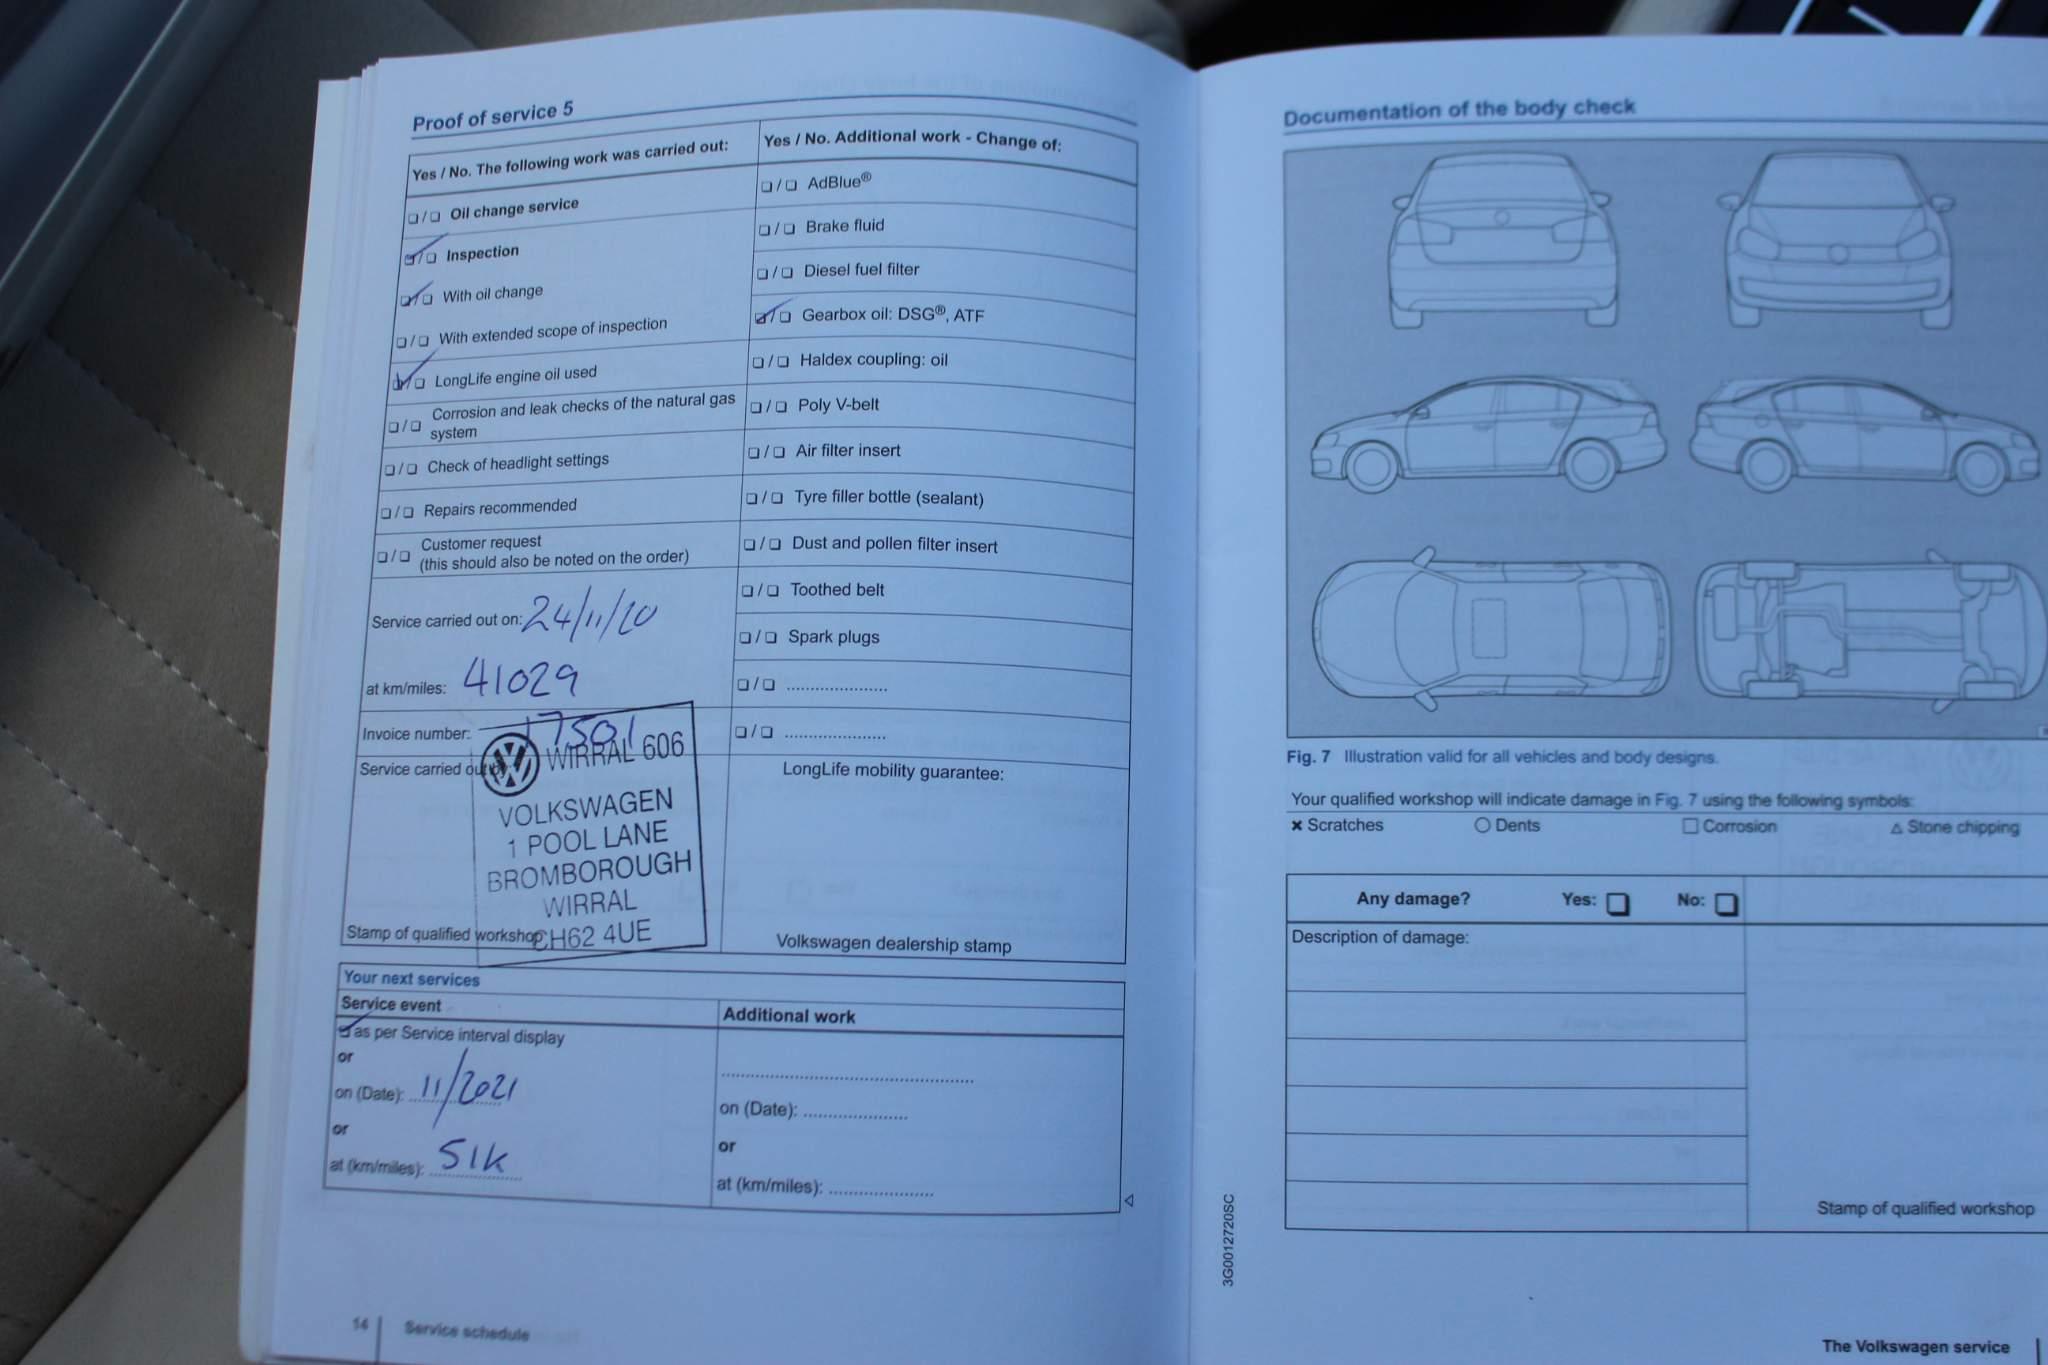 Proof of service 5
Yes / No. The following work was carried out:
❏ / ❏ Oil change service
❏ / ❏ Inspection
❏ / ❏ With oil change
❏ / ❏ With extended scope of inspection
❏ / ❏ LongLife engine oil used
❏ / ❏ Corrosion and leak checks of the natural gas
system
❏ / ❏ Check of headlight settings
❏ / ❏ Repairs recommended
❏ / ❏ Customer request
(this should also be noted on the order)
Service carried out on: 24/11/20
at km/miles: 41029
Invoice number: 17501
Service carried out by:
WIRRAL 606
VOLKSWAGEN
1 POOL LANE
BROMBOROUGH
WIRRAL
CH62 4UE
Stamp of qualified workshop
Yes / No. Additional work - Change of:
❏ / ❏ AdBlue®
❏ / ❏ Brake fluid
❏ / ❏ Diesel fuel filter
❏ / ❏ Gearbox oil: DSG®, ATF
❏ / ❏ Haldex coupling: oil
❏ / ❏ Poly V-belt
❏ / ❏ Air filter insert
❏ / ❏ Tyre filler bottle (sealant)
❏ / ❏ Dust and pollen filter insert
❏ / ❏ Toothed belt
❏ / ❏ Spark plugs
❏ / ❏ .....................
❏ / ❏ .....................
LongLife mobility guarantee:
Volkswagen dealership stamp
Your next services
Service event
as per Service interval display
or
on (Date): 11/2021
or
at (km/miles): 51K
Additional work
..................................................
on (Date): .....................
or
at (km/miles): .....................
14 Service schedule
Documentation of the body check
Fig. 7 Illustration valid for all vehicles and body designs.
Your qualified workshop will indicate damage in Fig. 7 using the following symbols:
✖ Scratches ○ Dents □ Corrosion △ Stone chipping
Any damage? Yes: ❏ No: ❏
Description of damage:
Stamp of qualified workshop
3G0012720SC
The Volkswagen service